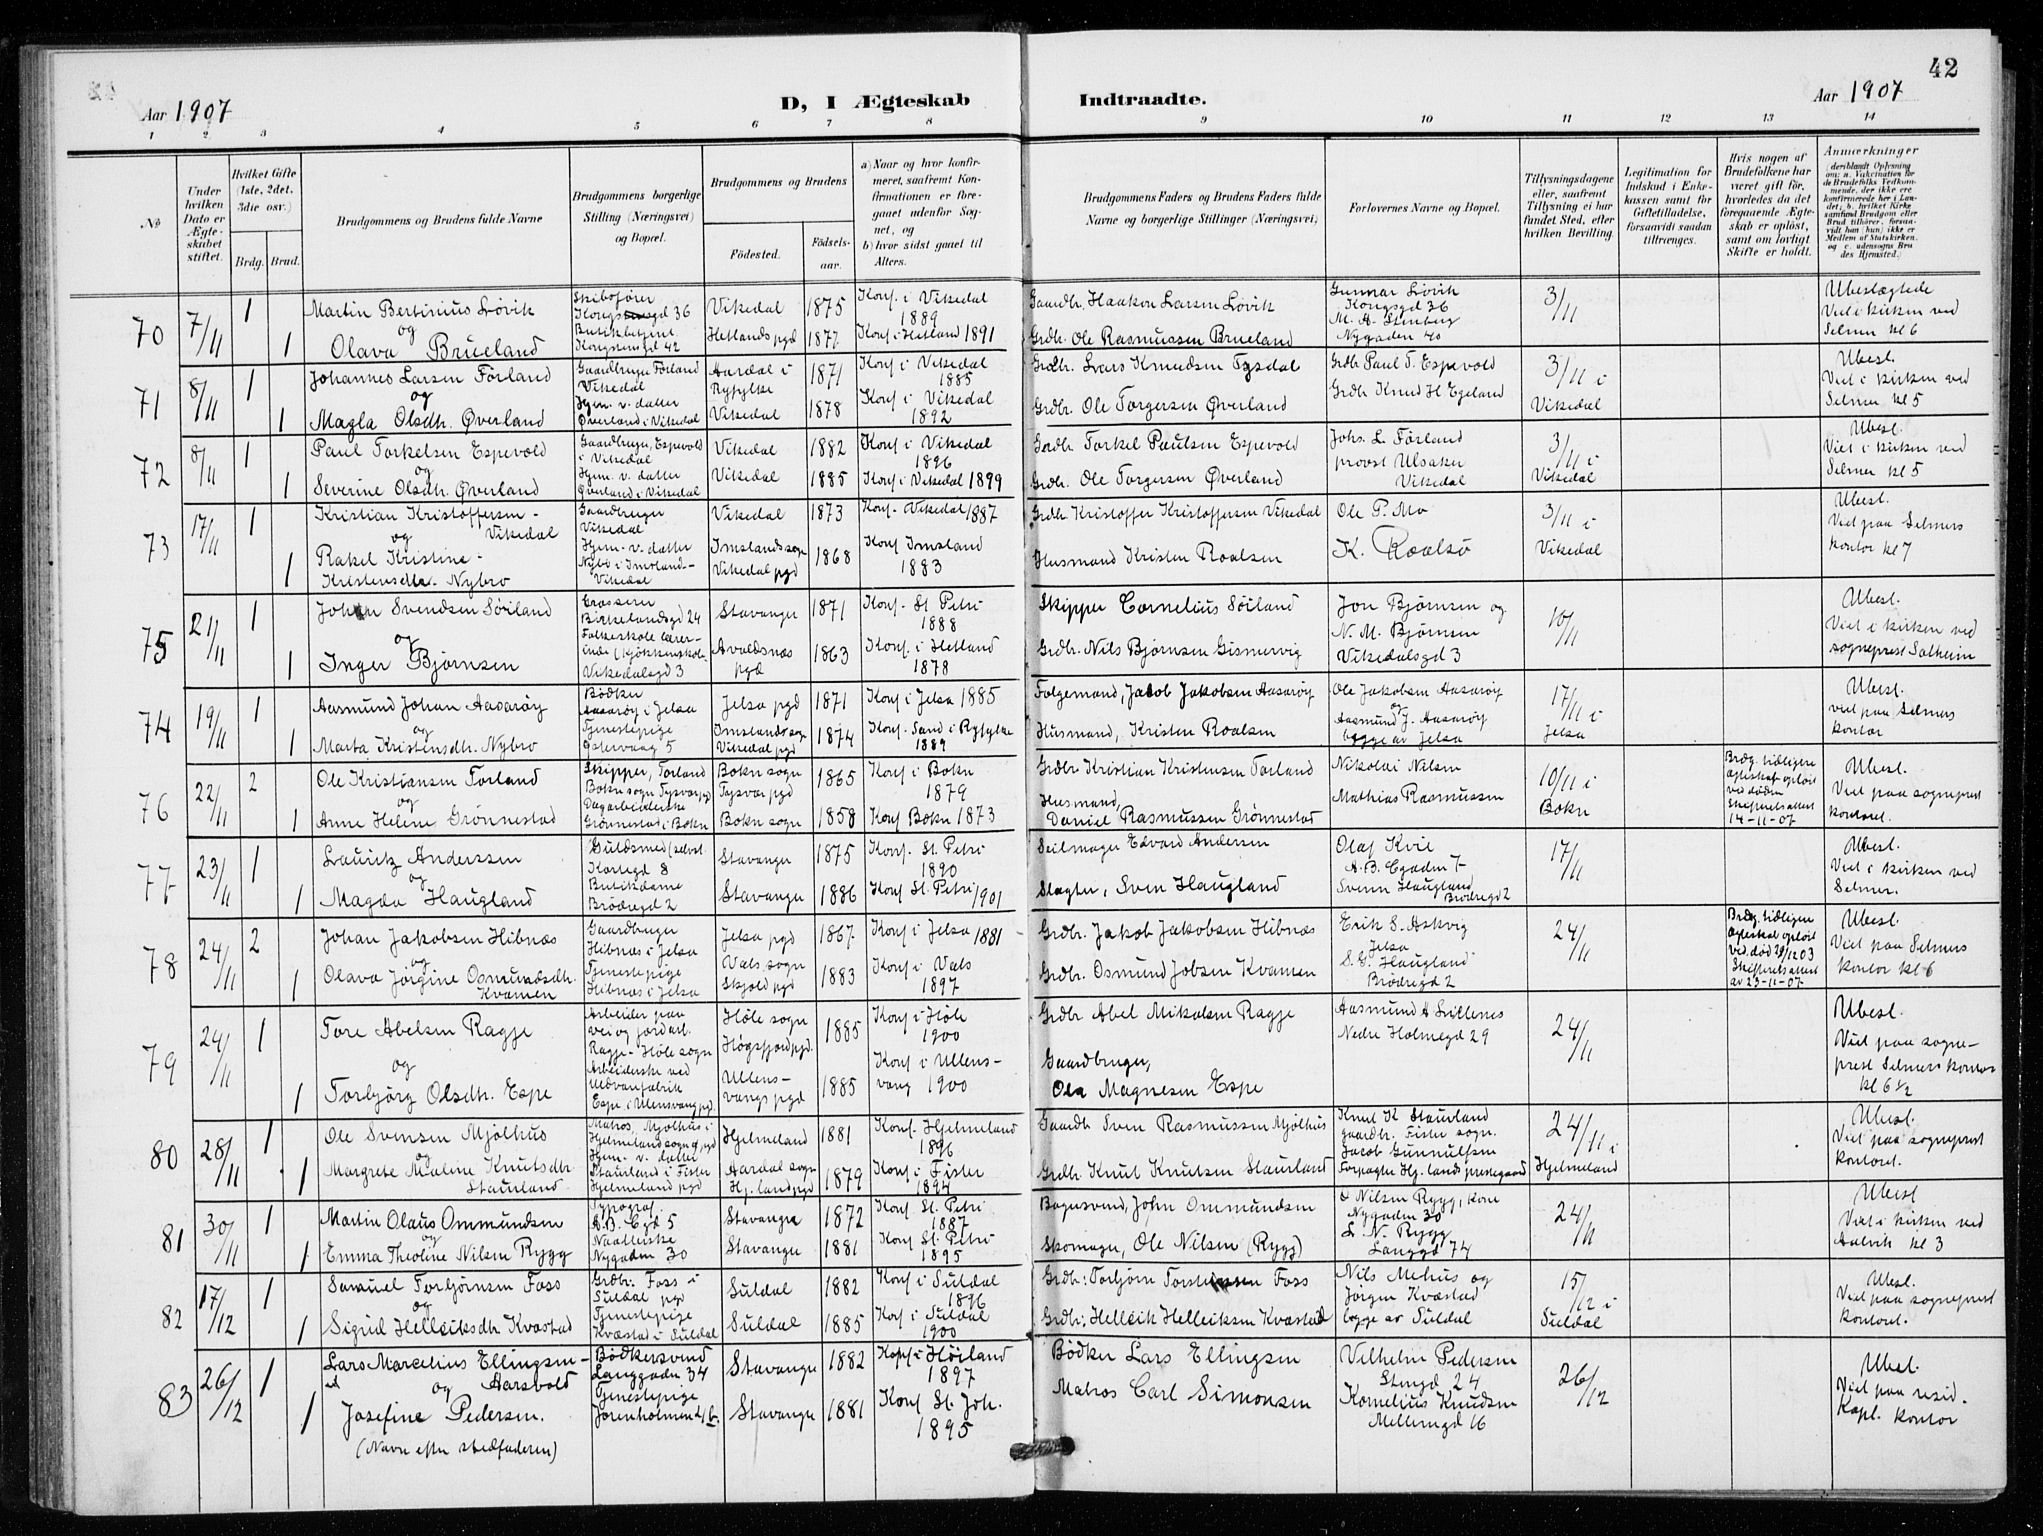 42
Aar 1907
D, I Ægteskab
Indtraadte.
Aar 1907
1 2 3 4 5 6 7 8 9 10 11 12 13 14
No
Under hvilken Dato er Ægteskabet stiftet.
Hvilket Gifte (1ste, 2det, 3die osv.)
Brdg. Brud.
Brudgommens og Brudens fulde Navne
Brudgommens borgerlige Stilling (Næringsvei) og Bopæl.
Brudgommens og Brudens
Fødested.
Fødsels-aar.
a) Naar og hvor konfirmeret, saafremt Konfirmationen er foregaaet udenfor Sognet, og
b) hvor sidst gaaet til Alters.
Brudgommens Faders og Brudens Faders fulde Navne og borgerlige Stillinger (Næringsvei)
Forlovernes Navne og Bopæl.
Tillysningsdagene eller, saafremt Tillysning ei har fundet Sted, efter hvilken Bevilling.
Legitimation for Indskud i Enkekassen samt for Giftetilladelse, forsaavidt saadan tiltrænges.
Hvis nogen af Brudefolkene har været gift før, hvorledes da det foregaaende Ægteskab er opløst, samt om lovligt Skifte er holdt.
Anmærkninger
70 7/11 1 Martin Bertinius Løvik Skibsfører Kongsgd 36 Vikedal 1875 Konf. i Vikedal 1889 Gaardbr. Haakon Larsen Løvik Gunnar Løvik Kongsgd 36 3/11 Ubeslægtede
og
1 Olava Brueland Butikbetjent Kongsgd 42 Hetlands pgd 1877 Konf. i Hetland 1891 Grdbr. Ole Rasmussen Brueland M. A. Stenberg Nygaden 40 Viet i kirken ved Selmer kl 6
71 8/11 1 Johannes Larsen Førland Gaardbruger Førland Vikedal Aardal i Ryfylke 1871 Konf i Vikedal 1885 Grdbr. Lars Knudsen Tysdal Grdb. Paul T. Espevold 3/11 i Vikedal Ubesl.
og
1 Magla Olsdtr. Øverland Hjem. v. datter Øverland i Vikedal Vikedal 1878 Konf i Vikedal 1892 Grdbr. Ole Torgersen Øverland Grdb. Knud H Egeland Viet i kirken ved Selmer kl 5
72 8/11 1 Paul Torkelsen Espevold Gaardbruger, Espevold i Vikedal Vikedal 1882 Konf i Vikedal 1896 Grdbr Torkel Paulsen Espevold Johs. L. Førland 3/11 i Vikedal Ubesl.
og
1 Severine Olsdtr. Øverland Hjem. v. datter Øverland i Vikedal Vikedal 1885 Konf i Vikedal 1899 Grdb. Ole Torgersen Øverland provst Ulsaker Vikedal Viet i kirken ved Selmer kl 5
73 17/11 1 Kristian Kristoffersen - Vikedal Gaardbruger Vikedal Vikedal 1873 Konf. Vikedal 1887 Grdb. Kristoffer Kristoffersen Vikedal Ole P. Mo 3/11 i Vikedal Ubesl.
og
1 Rakel Kristine - Kristensdtr. Nybro Hjem. v. datter Nybro i Imsland - Vikedal Imslands sogn Vikedal pgd 1868 Konf Imsland 1883 Husmand Kristen Roalsen K. Roalsø Viet paa Selmers kontor kl 7
75 21/11 1 Johan Svendsen Søiland Grosserer Birkelandsgd 24 Stavanger 1871 Konf. St Petri 1888 Skipper Cornelius Søiland Jon Bjørnsen og 10/11 Ubesl.
og
1 Inger Bjørnsen Folkeskole lærerinde (kjøkkenskole) Vikedalsgd 3 Avaldsnes pgd 1863 Konf. i Hetland 1878 Grdbr. Nils Bjørnsen Gismervig N. M. Bjørnsen Vikedalsgd 3 Viet i kirken ved sogneprest Solheim
74 19/11 1 Aasmund Johan Aasarøy Bødker Aasarøy i Jelsa Jelsa pgd 1871 Konf i Jelsa 1885 Folgemand, Jacob Jakobsen Aasarøy Ole Jakobsen Aasarøy 17/11 i Jelsa Ubesl.
og
1 Marta Kristensdtr. Nybro Tjenestepige Østervaag 5 Imslands sogn Vikedal pgd 1874 Konf. Sand i Ryfylke 1889 Husmand, Kristen Roalsen og Aasmund J. Aasarøy begge av Jelsa viet paa Selmers kontor
76 22/11 2 Ole Kristiansen Førland Skipper, Førland Bokn sogn Tysvær pgd Bokn sogn Tysvær pgd 1865 Konf i Bokn 1879 Grdbr Kristian Kristensen Førland Nikolai Nilsen 10/11 i Bokn Brdg. tidligere ægteskab opløst ved døden Skifteretsattest 14-11-07 Ubesl.
og
1 Anne Helene Grønnestad Dagarbeiderske Grønnestad i Bokn Bokn sogn 1858 Konf Bokn 1873 Husmand, Daniel Rasmussen Grønnestad Mathias Rasmussen Viet paa sogneprest kontoret.
77 23/11 1 Lauritz Anderssen Guldsmed (selvst. Korsgd 8 Stavanger 1875 Konf. St. Petri 1890 Seilmager Edvard Andersen Olaf Kvie A. B. Cgaden 7 17/11 Ubesl.
og
1 Magda Haugland Butikdame Brødregd 2 Stavanger 1886 Konf St. Petri 1901 Slagter, Sven Haugland Svenn Haugland Brødregd 2 Viet i kirken ved Selmer.
78 24/11 2 Johan Jakobsen Hibnæs Gaardbruger Hibnæs i Jelsa Jelsa pgd 1867 Konf i Jelsa 1881 Grdbr. Jakob Jakobsen Hibnæs Erik S. Askvig Jelsa 24/11 Brdg. tidligere ægteskab opløst ved død 29/12 03 Skifteretsattest av 23-11-07 Ubesl.
og
1 Olava Jørgine Osmundsdtr. Kvamen Tjenestepige Hibnæs i Jelsa Vats sogn Skjold pgd 1883 Konf i Vats 1897 Grdbr. Osmund Jobsen Kvamen S. G. Haugland Brødregd 2 Viet paa Selmers kontor kl 6
79 24/11 1 Tore Abelsen Ragje Arbeider paa vei og jordarb. Ragje - Høle sogn Høle sogn Høgsfjord pgd. 1885 Konf i Høle 1900 Grdbr Abel Mikalsen Ragje Aasmund A Lillenes Nedre Holmegd 29 24/11 Ubesl.
og
1 Torbjørg Olsdtr. Espe Arbeiderske ved Uldvarefabrik Espe i Ulensvang pgd. Ullensvangs pgd 1885 Konf i Ullensvang 1900 Gaardbruger, Ola Magnesen Espe Viet paa sogneprest Selmers kontor kl 6 1/2
80 28/11 1 Ole Svensen Mjølhus Matros, Mjølhus i Hjelmeland sogn & pgd Hjelmeland 1881 Konf. Hjelmeland 1896 Gaardb Sven Rasmussen Mjølhus Knut K Staurland gaardb. Fister sogn. 24/11 i Hjelmeland Ubesl.
og
1 Margrete Maline Knutsdtr. Staurland Hjem. v. datter Staurland i Fister Hjelmeland pgd Aardal sogn Hj. land pgd 1879 Konf i Fister 1894 Grdbr. Knut Knutsen Staurland Jacob Gunnulfsen Forpagter Hj. lands prestegaard Viet paa sogneprest kontoret.
81 30/11 1 Martin Olaus Ommundsen Typograf. A.B. Cgd 5 Stavanger 1872 Konf St. Petri 1887 Bagersvend, John Ommundsen O Nilsen Rygg, Nygaden 30 24/11 Ubesl
og
1 Emma Theoline Nilsen Rygg Naatlerske Nygaden 30 Stavanger 1881 Konf St. Petri 1895 Skomager, Ole Nilsen (Rygg) L. N. Rygg Langgd 74 Viet i kirken ved Aalvik kl 3
82 17/12 1 Samuel Torbjørnsen Foss Grdbr: Foss i Suldal pgd Suldal 1882 Konf i Suldal 1896 Grdb: Torbjørn Torsteinsen Foss Nils Mehus og 15/12 i Suldal Ubesl.
og
1 Sigrid Helleiksdtr Kvæstad Tjenestepige Kvæstad i Suldal Suldal 1885 Konf i Suldal 1900 Grdb; Helleik Helleiksen Kvæstad Jørgen Kvæstad begge av Suldal Viet paa sogneprest kontoret.
83 26/12 1 Lars Marcelius Ellingsen - Aarsvold Bødkersvend Langgaden 34 Stavanger 1882 Konf i Høiland 1897 Bødker Lars Ellingsen Vilhelm Pedersen Stengd 24 26/12 Ubesl.
og
1 Josefine Pedersen. Tjenestepige Jorenholmen 16 Stavanger 1881 Konf St. Joh. 1895 Matros Carl Simonsen Kornelius Knudsen Mellemgd 16 Viet paa resid. Kapl. kontor
(Navn efter stedfaderen)